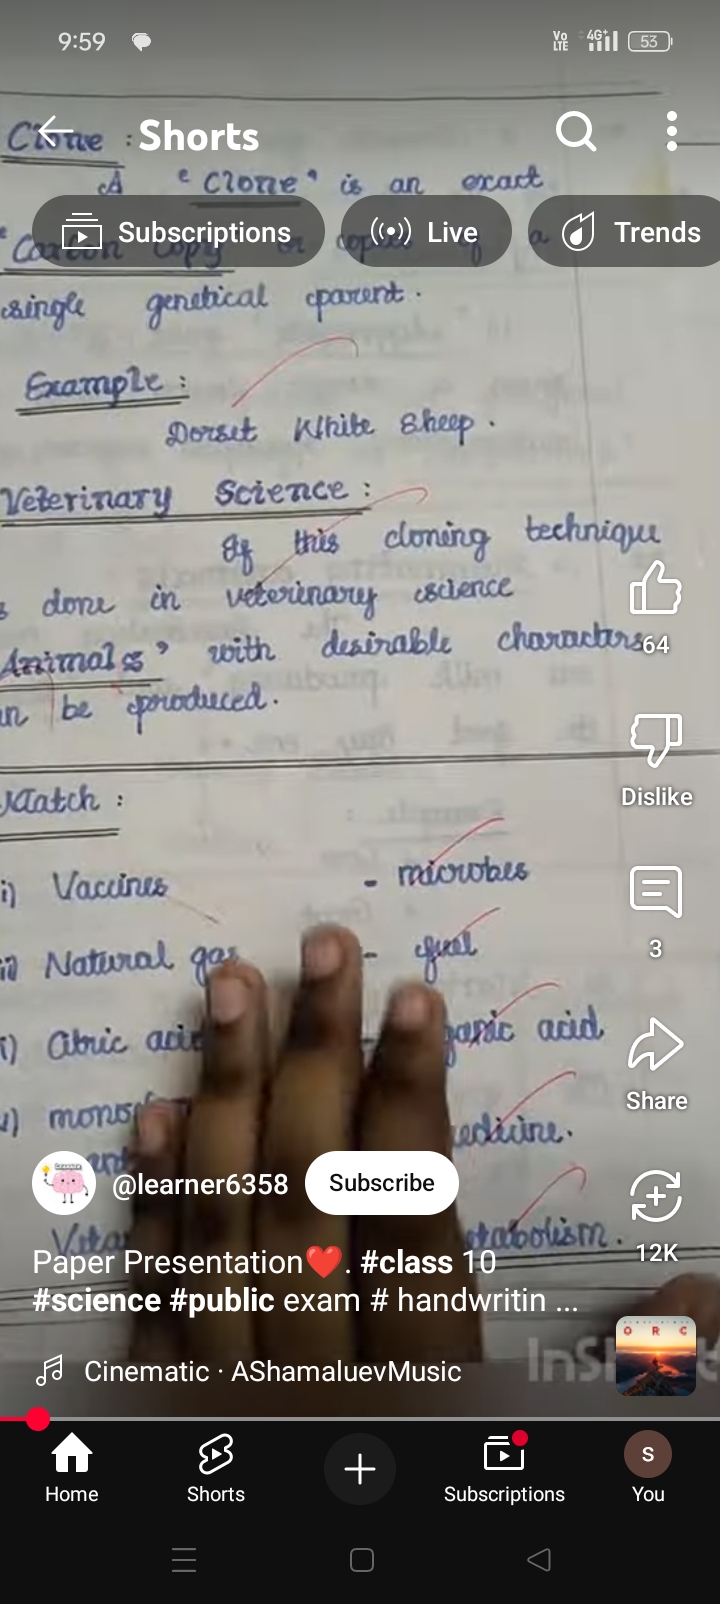 9:59
Vo LTE 4G+ 53
Clone : Shorts
A "Clone" is an exact
Subscriptions Live Trends
Carbon Copy or copies of a
single genetical parent.
Example :
Dorset White Sheep.
Veterinary Science :
If this cloning technique
done in veterinary science
Animals" with desirable characters
64
be produced.
Dislike
Match :
i) Vaccines - microbes
3
ii) Natural gas - fuel
i) Citric acid ganic acid
Share
) mono edicine.
@learner6358 Subscribe
Vita etabolism.
12K
Paper Presentation❤️. #class 10
#science #public exam # handwritin ...
ORC
InSh
Cinematic · AShamaluevMusic
Home Shorts Subscriptions S You